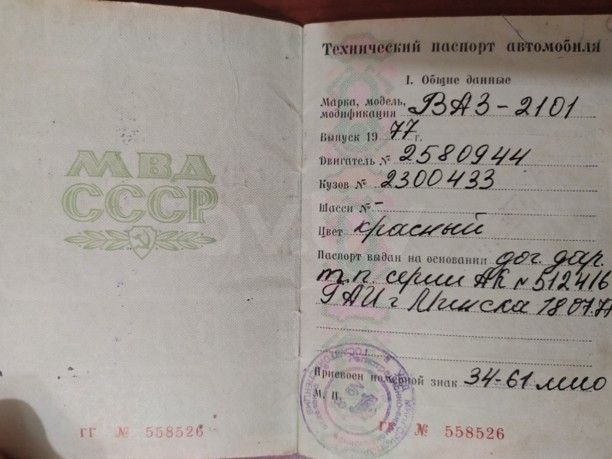 МВД
СССР
ГГ № 558526
Технический паспорт автомобиля
I. Общие данные
Марка, модель,
модификация ВАЗ-2101
Выпуск 1977 г.
Двигатель № 2580944
Кузов № 2300433
Шасси № -
Цвет красный
Паспорт выдан на основании дог. дар.
т.п. серии АК № 512416
ГАИ г Минска 18.07.77
Присвоен номерной знак 34-61 мио
М. П.
ГГ № 558526